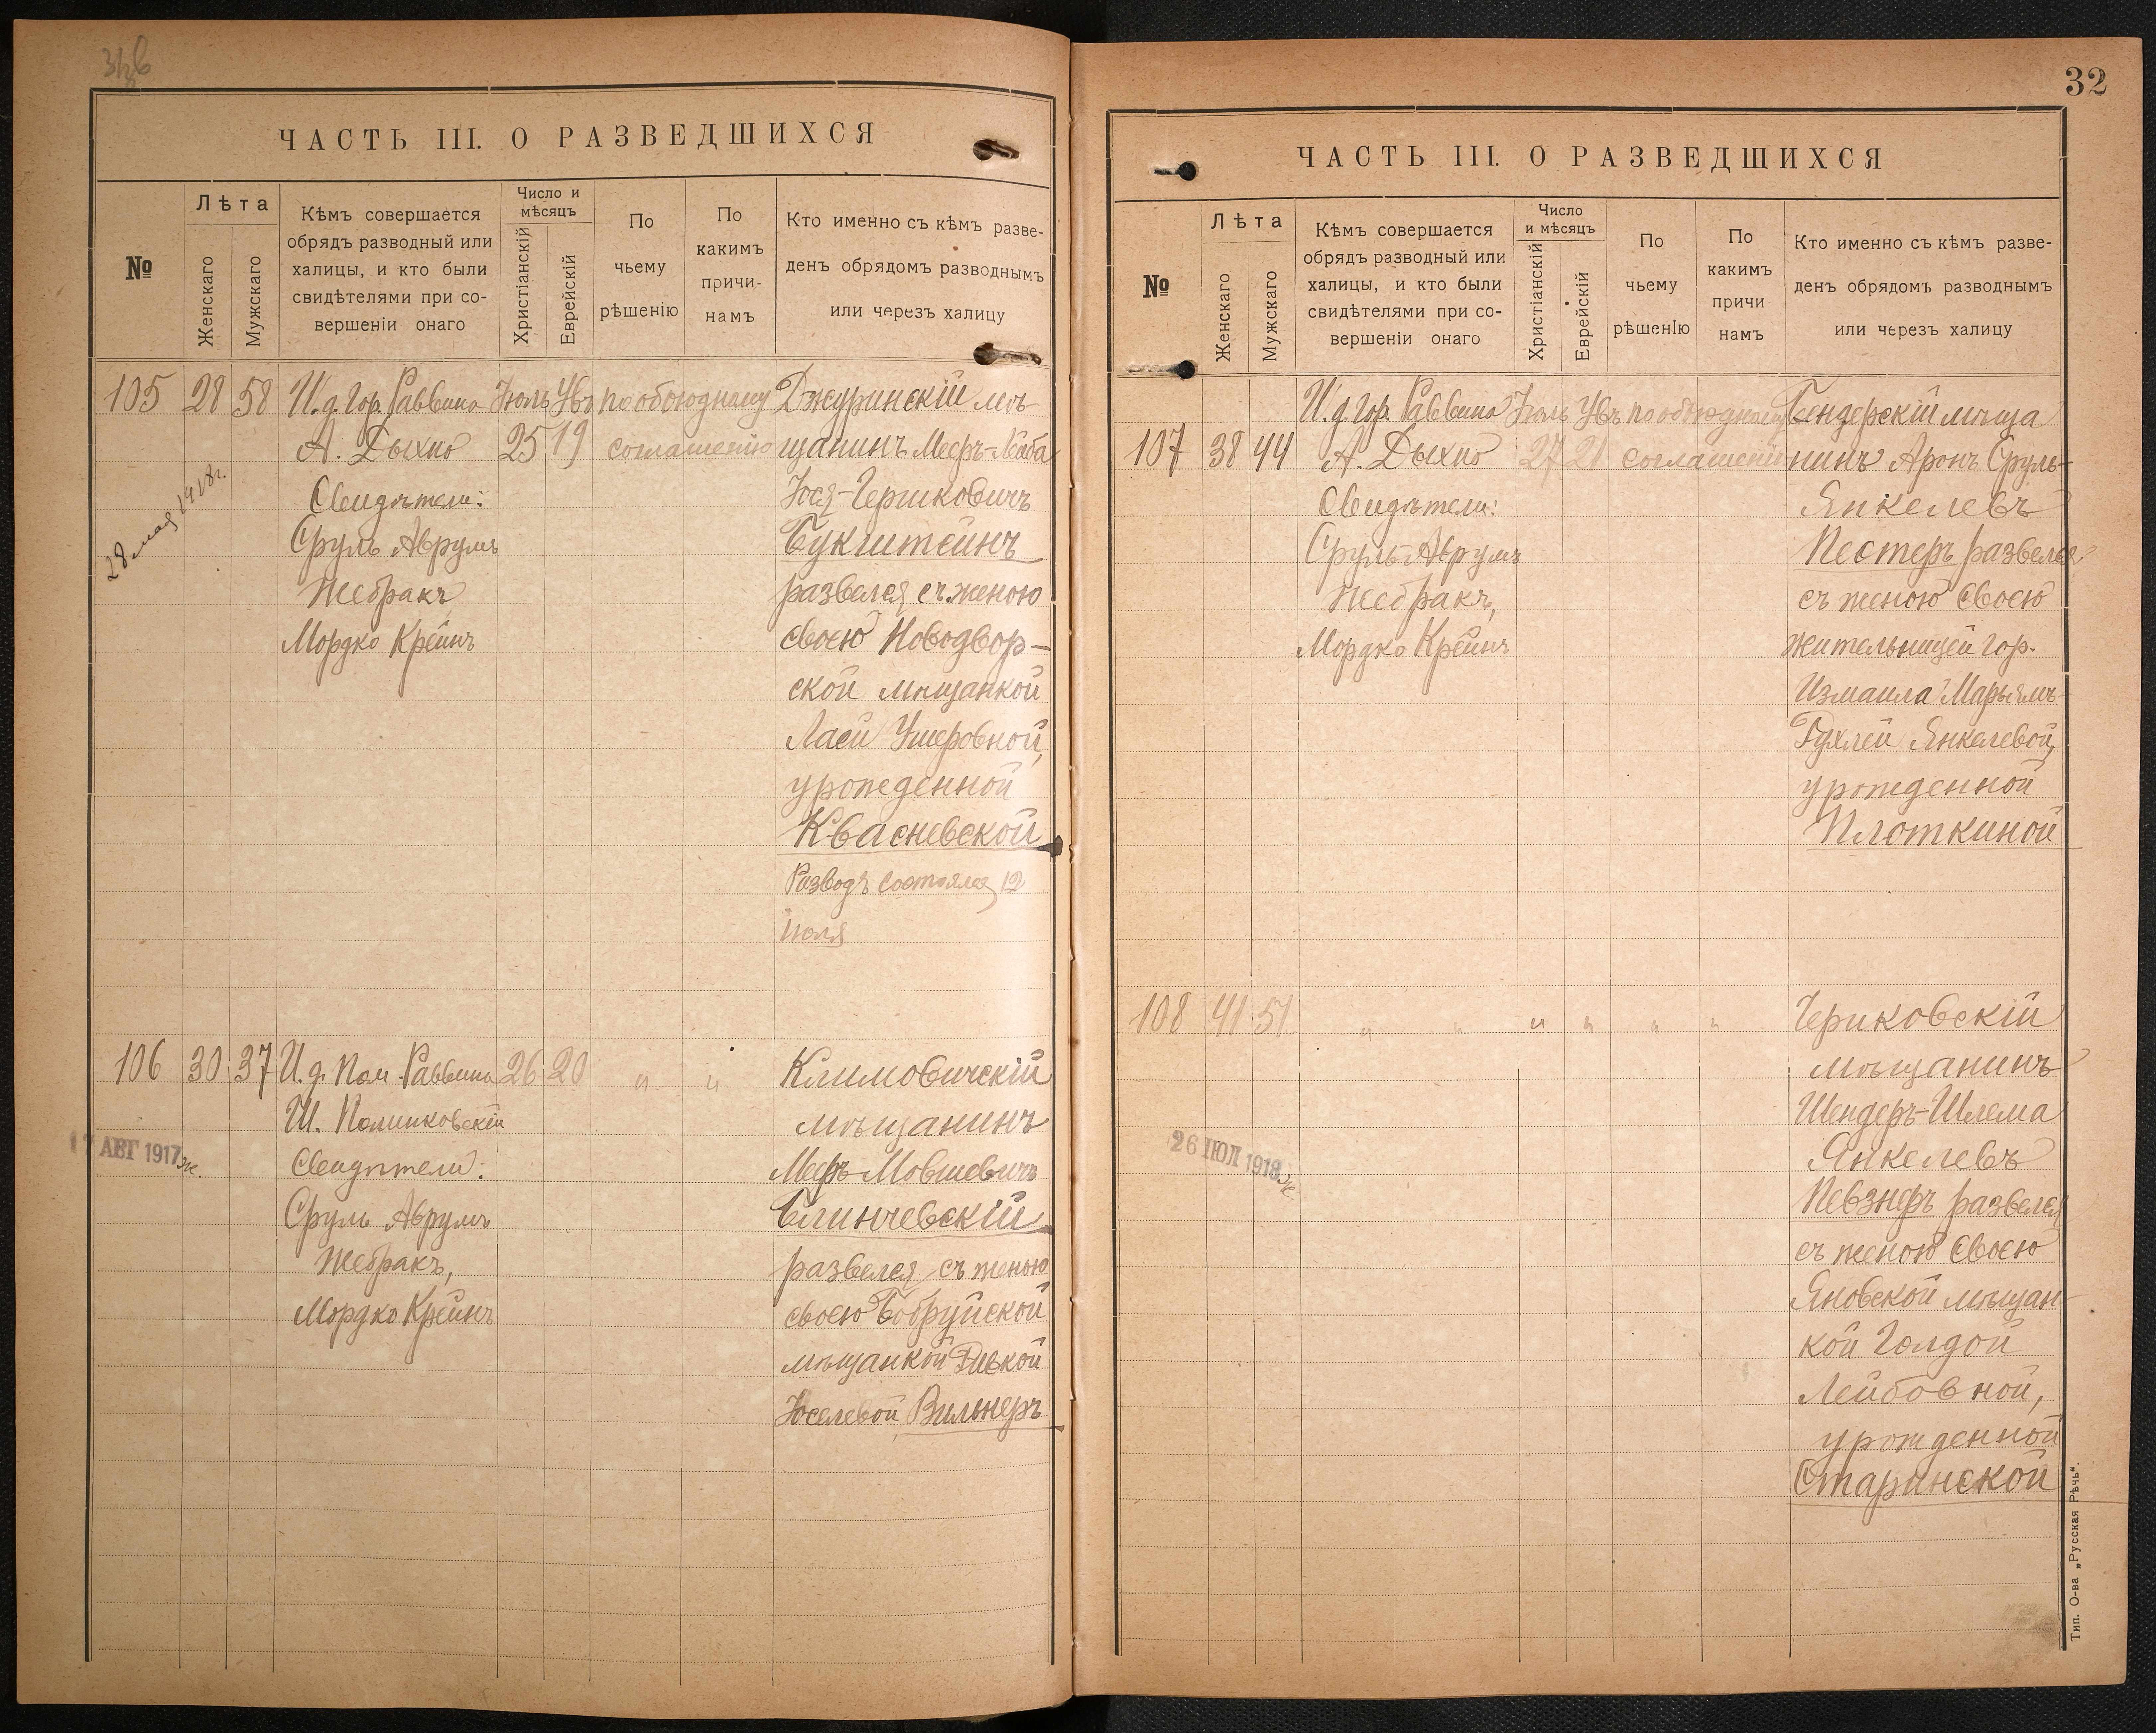 ЧАСТЬ III. О РАЗВЕДШИХСЯ
№
Лѣта
Женскаго
Мужскаго
Кѣмъ совершается
обрядъ разводный или
халицы, и кто были
свидѣтелями при со-
вершеніи онаго
Число и
мѣсяцъ
Христіанскій
Еврейскій
По
чьему
рѣшенію
По
какимъ
причи-
намъ
Кто именно съ кѣмъ разве-
денъ обрядомъ разводнымъ
или черезъ халицу
105 28 58 И. д. Гор. Раввина Іюль Увъ по обоюдному Джуринскій мѣ-
А. Дыхно 25 19 соглашенію щанинъ Мееръ-
28 мая 1918г.
Свидѣтели: Іося-Гершковичъ
Сруль Аврумъ Букштейнъ
Жебракъ развелся съ женою
Мордко Крейнъ своею Новодвор-
ской мѣщанкой
Ласи Ушеровной,
урожденной
Квасневской
Разводъ состоялся 12
Іюля
106 30 37 И. д. Пом. Раввина 26 20 " " Климовичскій
Ш. мѣщанинъ
17 АВГ 1917
Свидѣтели: Меръ Мовшевичъ
Сруль Аврумъ Блинчевскій
Жебракъ, развелся съ женою
Мордко Крейнъ своею Бобруйской
мѣщанкой Ривкой
Іоселевой Вильнеръ
32
ЧАСТЬ III. О РАЗВЕДШИХСЯ
№
Лѣта
Женскаго
Мужскаго
Кѣмъ совершается
обрядъ разводный или
халицы, и кто были
свидѣтелями при со-
вершеніи онаго
Число
и мѣсяцъ
Христіанскій
Еврейскій
По
чьему
рѣшенІю
По
какимъ
причи
намъ
Кто именно съ кѣмъ разве-
денъ обрядомъ разводнымъ
или черезъ халицу
И. д. гор. Раввина Іюль Увъ по обоюдному Бендерскій мѣща
107 38 44 А. Дыхно 27 21 соглашенію нинъ Аронъ Сруль-
Свидѣтели: Янкелевъ
Сруль-Аврумъ Пестеръ развелся
Жебракъ, съ женою своею
Мордко Крейнъ жительницей гор.
Измаила Марьямъ
Рухлей Янкелевой,
урожденной
Плоткиной
108 41 51 " " " " " " Чериковскій
мѣщанинъ
Шендеръ-Шлема
26 ІЮЛ 1918
Янкелевъ
Певзнеръ развелся
съ женою своею
Яновской мѣщан-
кой Голдой
Лейбовной,
урожденной
Старинской
Тип. О-ва „Русская Рѣчь".